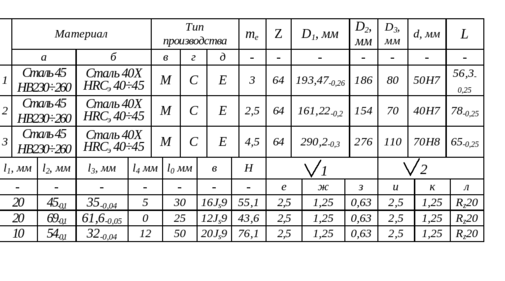 Материал Тип производства mₑ Z D₁, мм D₂, мм D₃, мм d, мм L
а б в г д - - - - - - -
1 Сталь 45 НВ230÷260 Сталь 40Х HRCэ 40÷45 М С Е 3 64 193,47-0,26 186 80 50Н7 56,3-0,25
2 Сталь 45 НВ230÷260 Сталь 40Х HRCэ 40÷45 М С Е 2,5 64 161,22-0,2 154 70 40Н7 78-0,25
3 Сталь 45 НВ230÷260 Сталь 40Х HRCэ 40÷45 М С Е 4,5 64 290,2-0,3 276 110 70Н8 65-0,25
l₁, мм l₂, мм l₃, мм l₄ мм l₀ мм в Н √1 √2
- - - - - - - е ж з и к л
20 45-0,1 35-0,04 5 30 16Jₛ9 55,1 2,5 1,25 0,63 2,5 1,25 R𝓏20
20 69-0,1 61,6-0,05 0 25 12Jₛ9 43,6 2,5 1,25 0,63 2,5 1,25 R𝓏20
10 54-0,1 32-0,04 12 50 20Jₛ9 76,1 2,5 1,25 0,63 2,5 1,25 R𝓏20